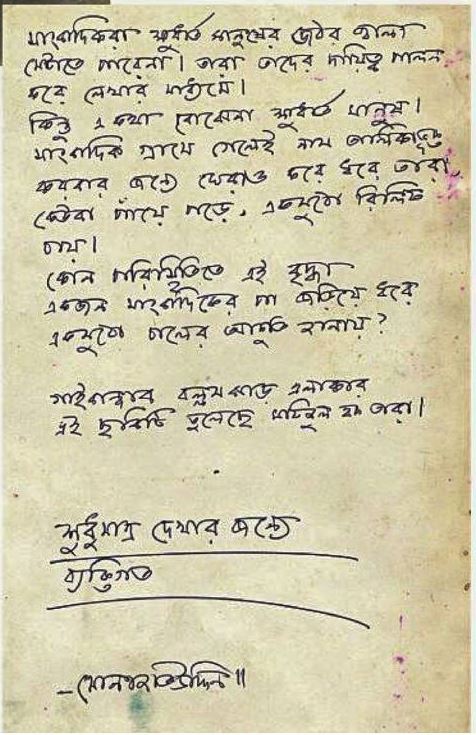 সাংবাদিকরা ক্ষুধার্ত মানুষের পেটের জ্বালা
মেটাতে পারেনা। তারা তাদের দায়িত্ব পালন
করে লেখার মাধ্যমে।
কিন্তু একথা বোঝেনা ক্ষুধার্ত মানুষ।
সাংবাদিক গ্রামে গেলেই নাম তালিকাভুক্ত
করবার জন্যে ঘেরাও করে ধরে তারা,
কেউবা পায়ে পড়ে, একমুঠো রিলিফ
চায়।
কোন পরিস্থিতিতে এই বৃদ্ধা
একজন সাংবাদিকের পা জড়িয়ে ধরে
একমুঠো চালের আকুতি জানায়?
গাইবান্ধার বল্লমঝাড় এলাকার
এই ছবিটি তুলেছে
শুধুমাত্র দেখার জন্যে
ব্যক্তিগত
–মোনাজাতউদ্দিন॥